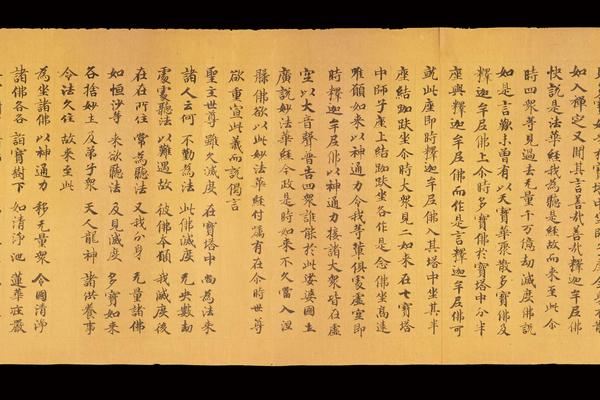 如入禪定又聞其言善哉善哉釋迦牟尼佛
快說是法華經我為聽是經故而來至此尒
時四衆等見過去无量千万億劫滅度佛說
如是言歎未曾有以天寶華聚散多寶佛及
釋迦牟尼佛上尒時多寶佛於寶塔中分半
座與釋迦牟尼佛而作是言釋迦牟尼佛可
就此座即時釋迦牟尼佛入其塔中坐其半
座結跏趺坐尒時大衆見二如來在七寶塔
中師子座上結跏趺坐各作是念佛坐高遠
唯願如來以神通力令我等輩俱處虛空即
時釋迦牟尼佛以神通力接諸大衆皆在虛
空以大音聲普告四衆誰能於此娑婆國土
廣說妙法華經今政是時如來不久當入涅
槃佛欲以此妙法華經付囑有在尒時世尊
欲重宣此義而說偈言
聖主世尊 雖久滅度 在寶塔中 尚為法來
諸人云何 不勤為法 此佛滅度 无央數劫
處處聽法 以難遇故 彼佛本願 我滅度後
在在所往 常為聽法 又我分身 无量諸佛
如恒沙等 來欲聽法 及見滅度 多寶如來
各捨妙土 及弟子衆 天人龍神 諸供養事
令法久住 故來至此
為坐諸佛 以神通力 移无量衆 令國清淨
諸佛各各 詣寶樹下 如清淨池 蓮華莊嚴